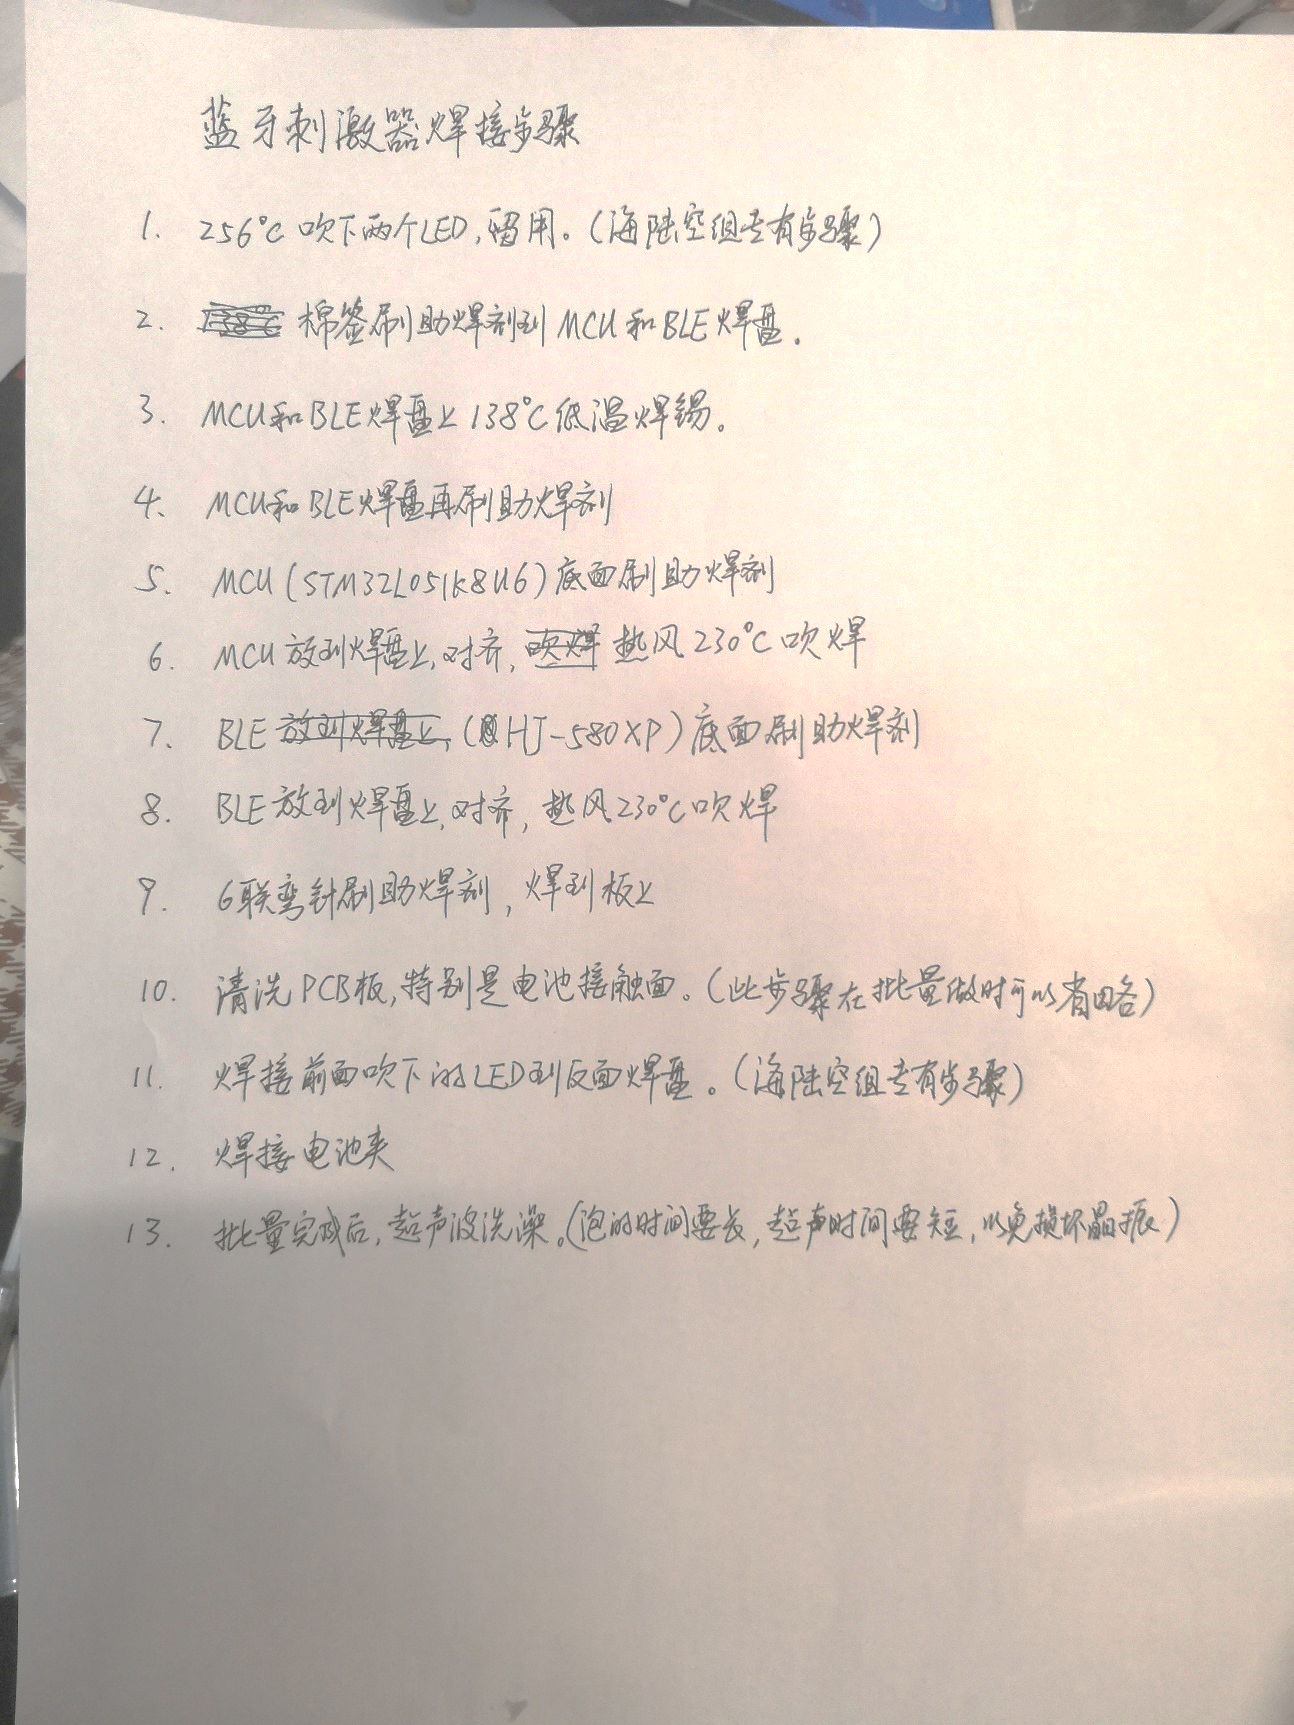 蓝牙刺激器焊接步骤
1. 256°C 吹下两个LED,留用。(海陆空组专有步骤)
2. 棉签刷助焊剂到 MCU 和 BLE 焊盘.
3. MCU和BLE焊盘上 138°C 低温焊锡。
4、 MCU和BLE焊盘再刷助焊剂
5、 MCU (STM32L051K8U6) 底面刷助焊剂
6. MCU 放到焊盘上,对齐, 热风 230°C 吹焊
7. BLE (HJ-580XP) 底面刷助焊剂
8. BLE 放到焊盘上,对齐, 热风230°C吹焊
9. 6联弯针刷助焊剂, 焊到板上
10. 清洗 PCB板,特别是电池接触面。(此步骤在批量做时可以省略)
11. 焊接前面吹下的LED到反面焊盘。(海陆空组专有步骤)
12. 焊接电池夹
13. 批量完成后,超声波洗澡。(泡的时间要长,超声时间要短,以免损坏晶振)